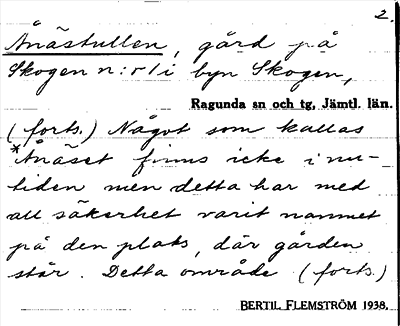 2.
Ånästullen, gård på
Skogen n:r 1 i byn Skogen,
Ragunda sn och tg, Jämtl. län.
(forts.) Något som kallas
*Ånäset finns icke i nu-
tiden men detta har med
all säkerhet varit namnet
på den plats, där gården
står. Detta område (forts.)
BERTIL FLEMSTRÖM 1938.